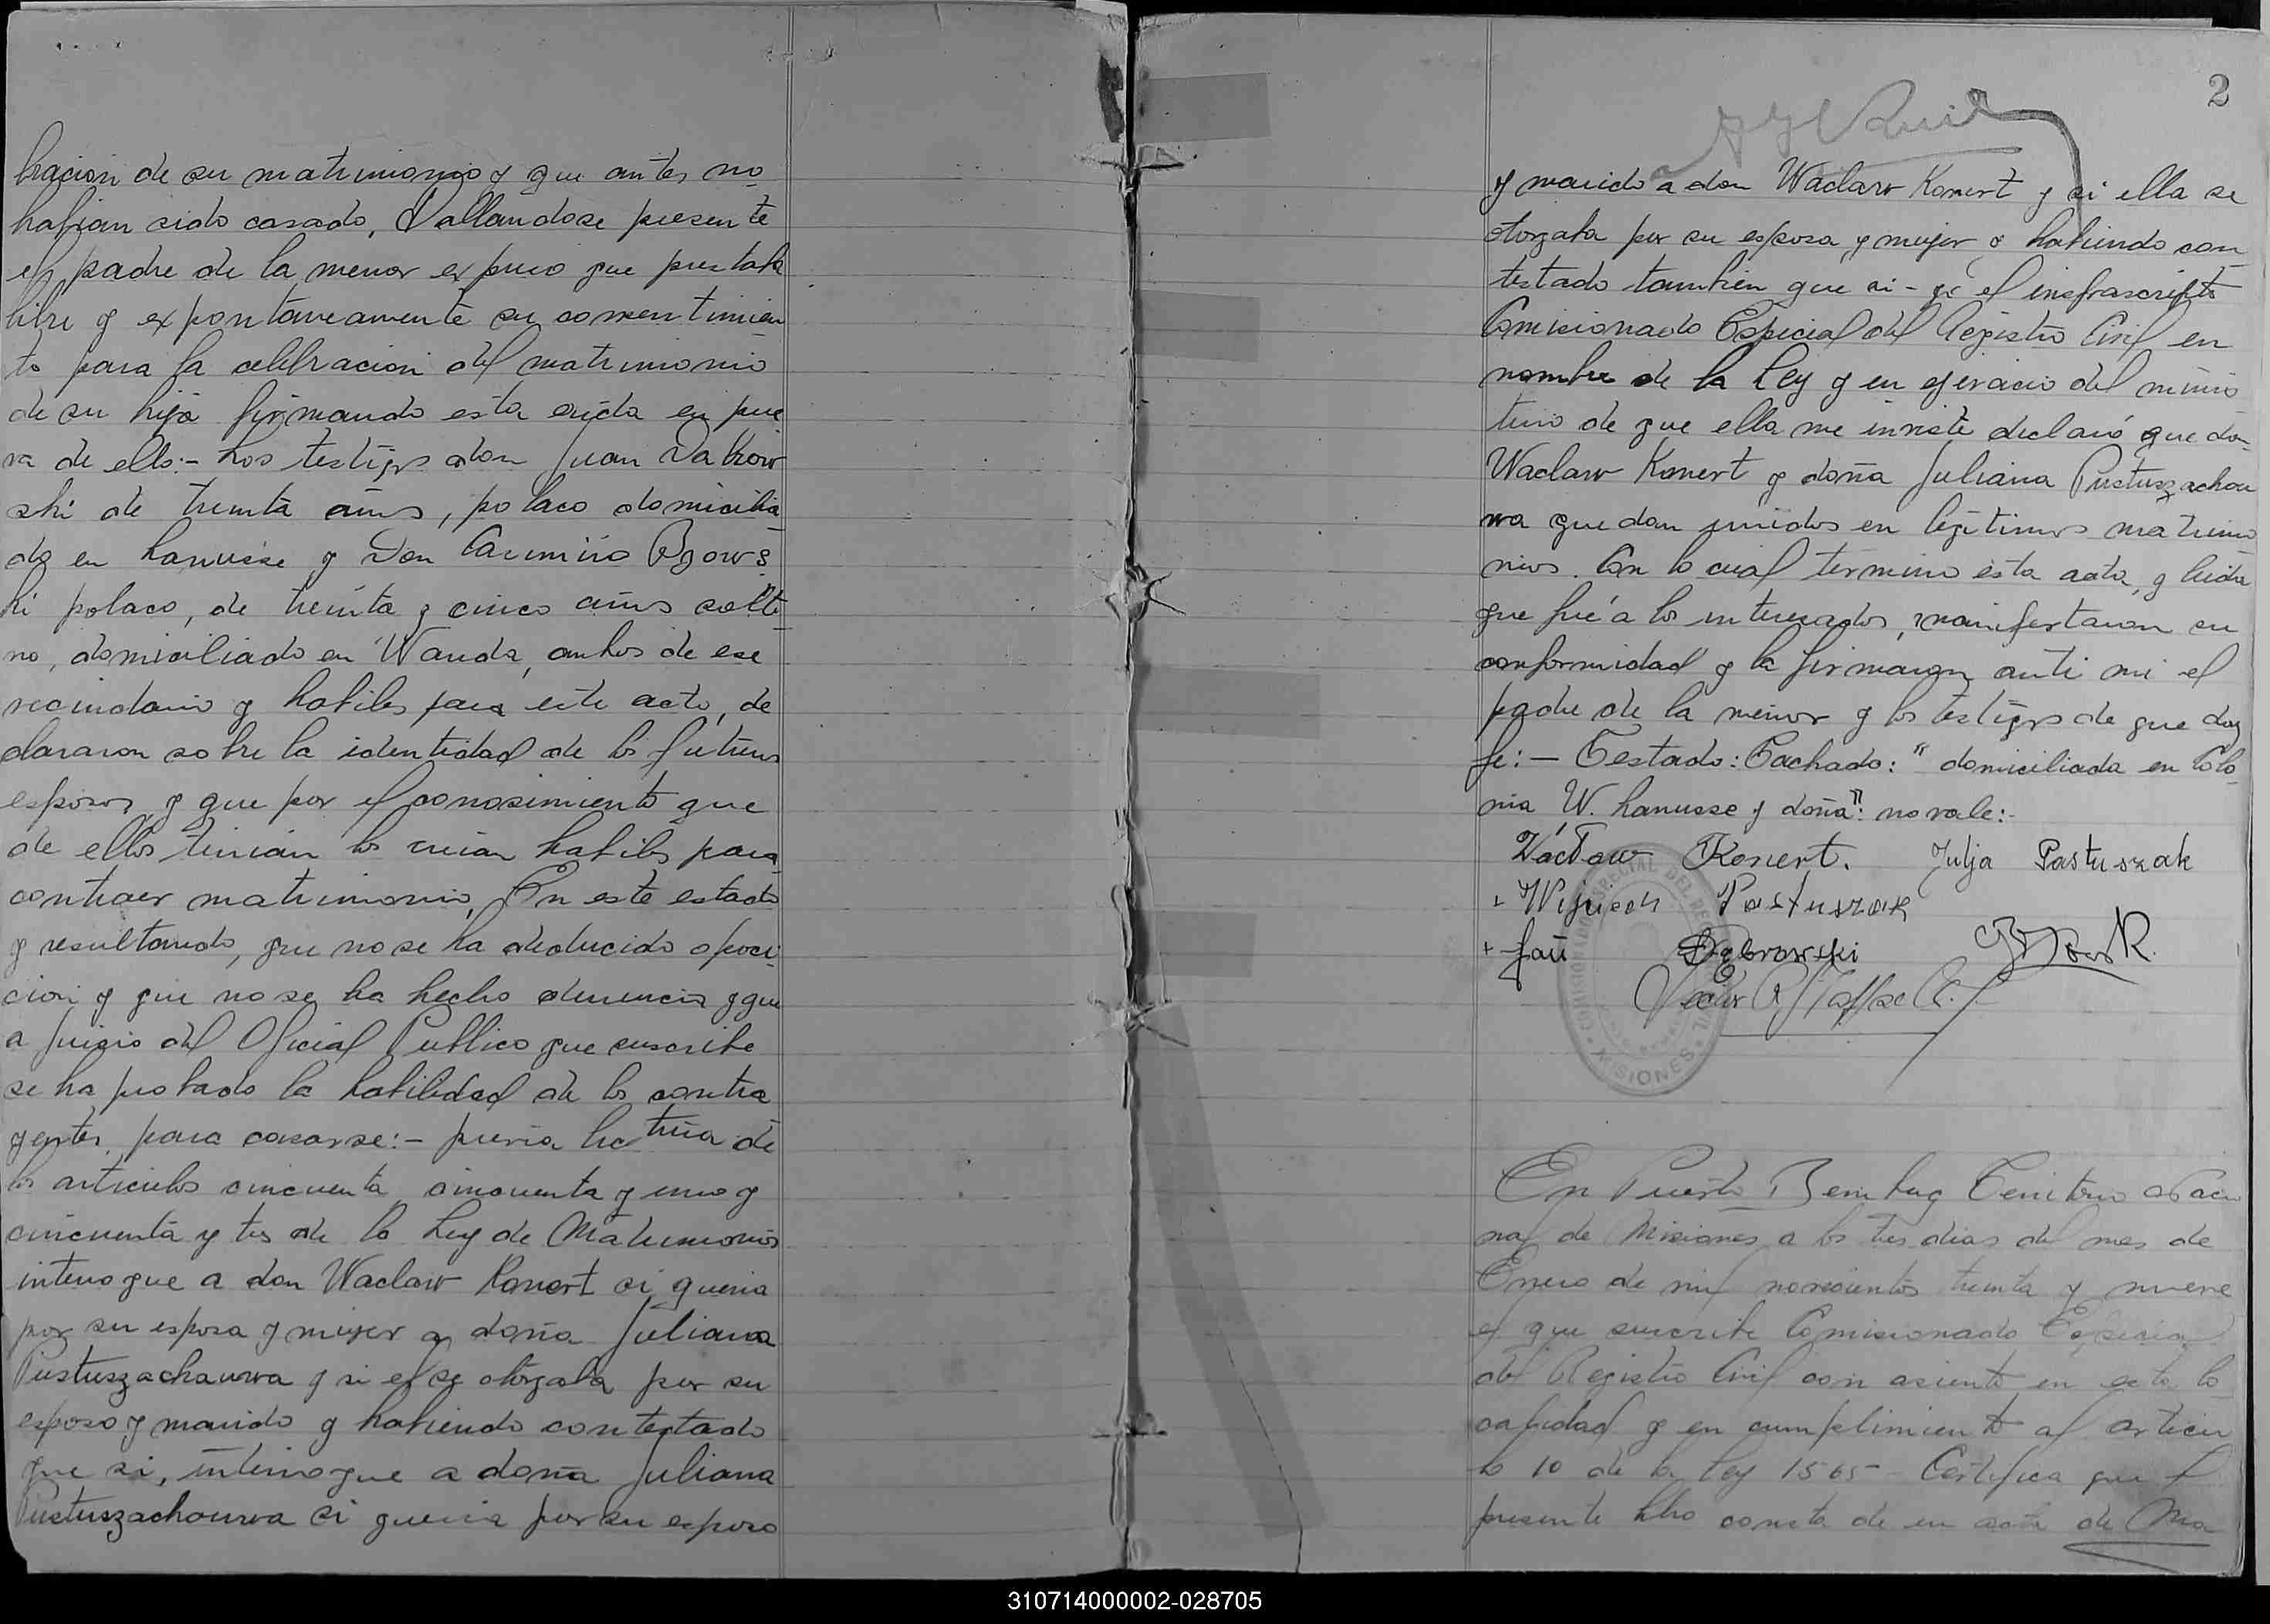 bracion de su matrimonio y que antes no
habian sido casado, Hallandose presente
el padre de la menor expuso que prestaba
libre y expontaneamente su consentimien
to para la celebracion del matrimonio
de su hija firmando esta acta en prue
va de ello:- Los testigos don Juan Dabrow
ski de treinta años, polaco domicilia
do en Lanusse y Don Casimiro Bzows
ki polaco, de treinta y cinco años solte
ro, domiciliado en Wanda, ambos de ese
vecindario y habiles para este acto, de
clararon sobre la identidad de los futuros
esposos, y que por el conosimiento que
de ellos tenian los creian habiles para
contraer matrimonio, En este estado
y resultando, que no se ha deducido oposi
cion y que no se ha hecho denuncia y que
a juisio del Oficial Publico que suscribe
se ha probado la habilidad de los contra
yentes, para casarse:- previa lectura de
los articulos cincuenta, cincuenta y uno y
cincuenta y tres de la Ley de Matrimonios
interrogue a don Waclaw Konert si queria
por su esposa y mujer a doña Juliana
Pustuszachauwa y si el se otorgaba por su
esposo y marido y habiendo contestado
que si, interrogue a doña Juliana
Pustuszachouwa si queria por su esposo
2
y marido a don Waclaw Konert y si ella se
otorgaba por su esposa y mujer y habiendo con
testado tambien que si - yo el infrascripto
Comisionado Especial del Registro Civil en
nombre de la Ley y en ejercicio del minis
terio de que ella me inviste declaró que don
Waclaw Konert y doña Juliana Pustuszachou
wa quedan unidos en legitimos matrimo
nios. Con lo cual termino esta acta, y leida
que fué a los interesados, manifestaron su
conformidad y la firmaron ante mi el
padre de la menor y los testigos de que doy
fe:- Testado: Tachado: "domiciliada en Colo
nia W. Lanusse y doña": no vale:-
Wacław Konert. Julja Pastuszak
Wojciech Pastuszak
+ Jan Dąbrowski
COMISIONADO ESPECIAL DEL REGISTRO CIVIL
MISIONES
En Puerto Bemberg Territorio Nacio
nal de Misiones a los tres dias del mes de
Enero de mil novecientos treinta y nueve
el que suscribe Comisionado Especial
del Registro Civil con asiento en esta lo
calidad y en cumplimiento al articu
lo 10 de la Ley 1565 - Certifica que el
presente libro consta de un acta de Ma
310714000002-028705